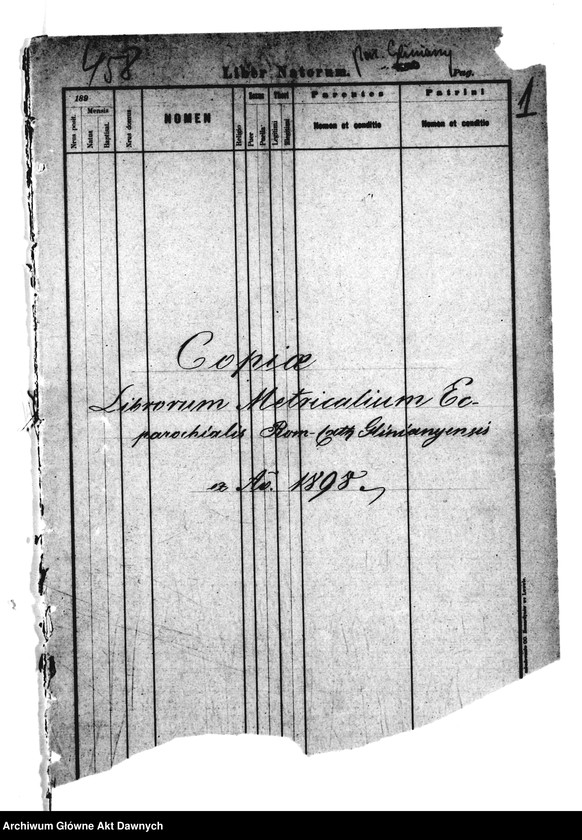 458
par. Gliniany
Liber Natorum.
Pag.
1
189
Mensis
Nrus posit.
Natus
Baptisat.
Nrus domus
NOMEN
Religio
Sexus
Puer
Puella
Thori
Legitimi
Illegitimi
Parentes
Nomen et conditio
Patrini
Nomen et conditio
Copiæ
Librorum Metricalium Ec-
parochialis Rom-Cath Glinianyensis
ex Ao. 1898
Archiwum Główne Akt Dawnych